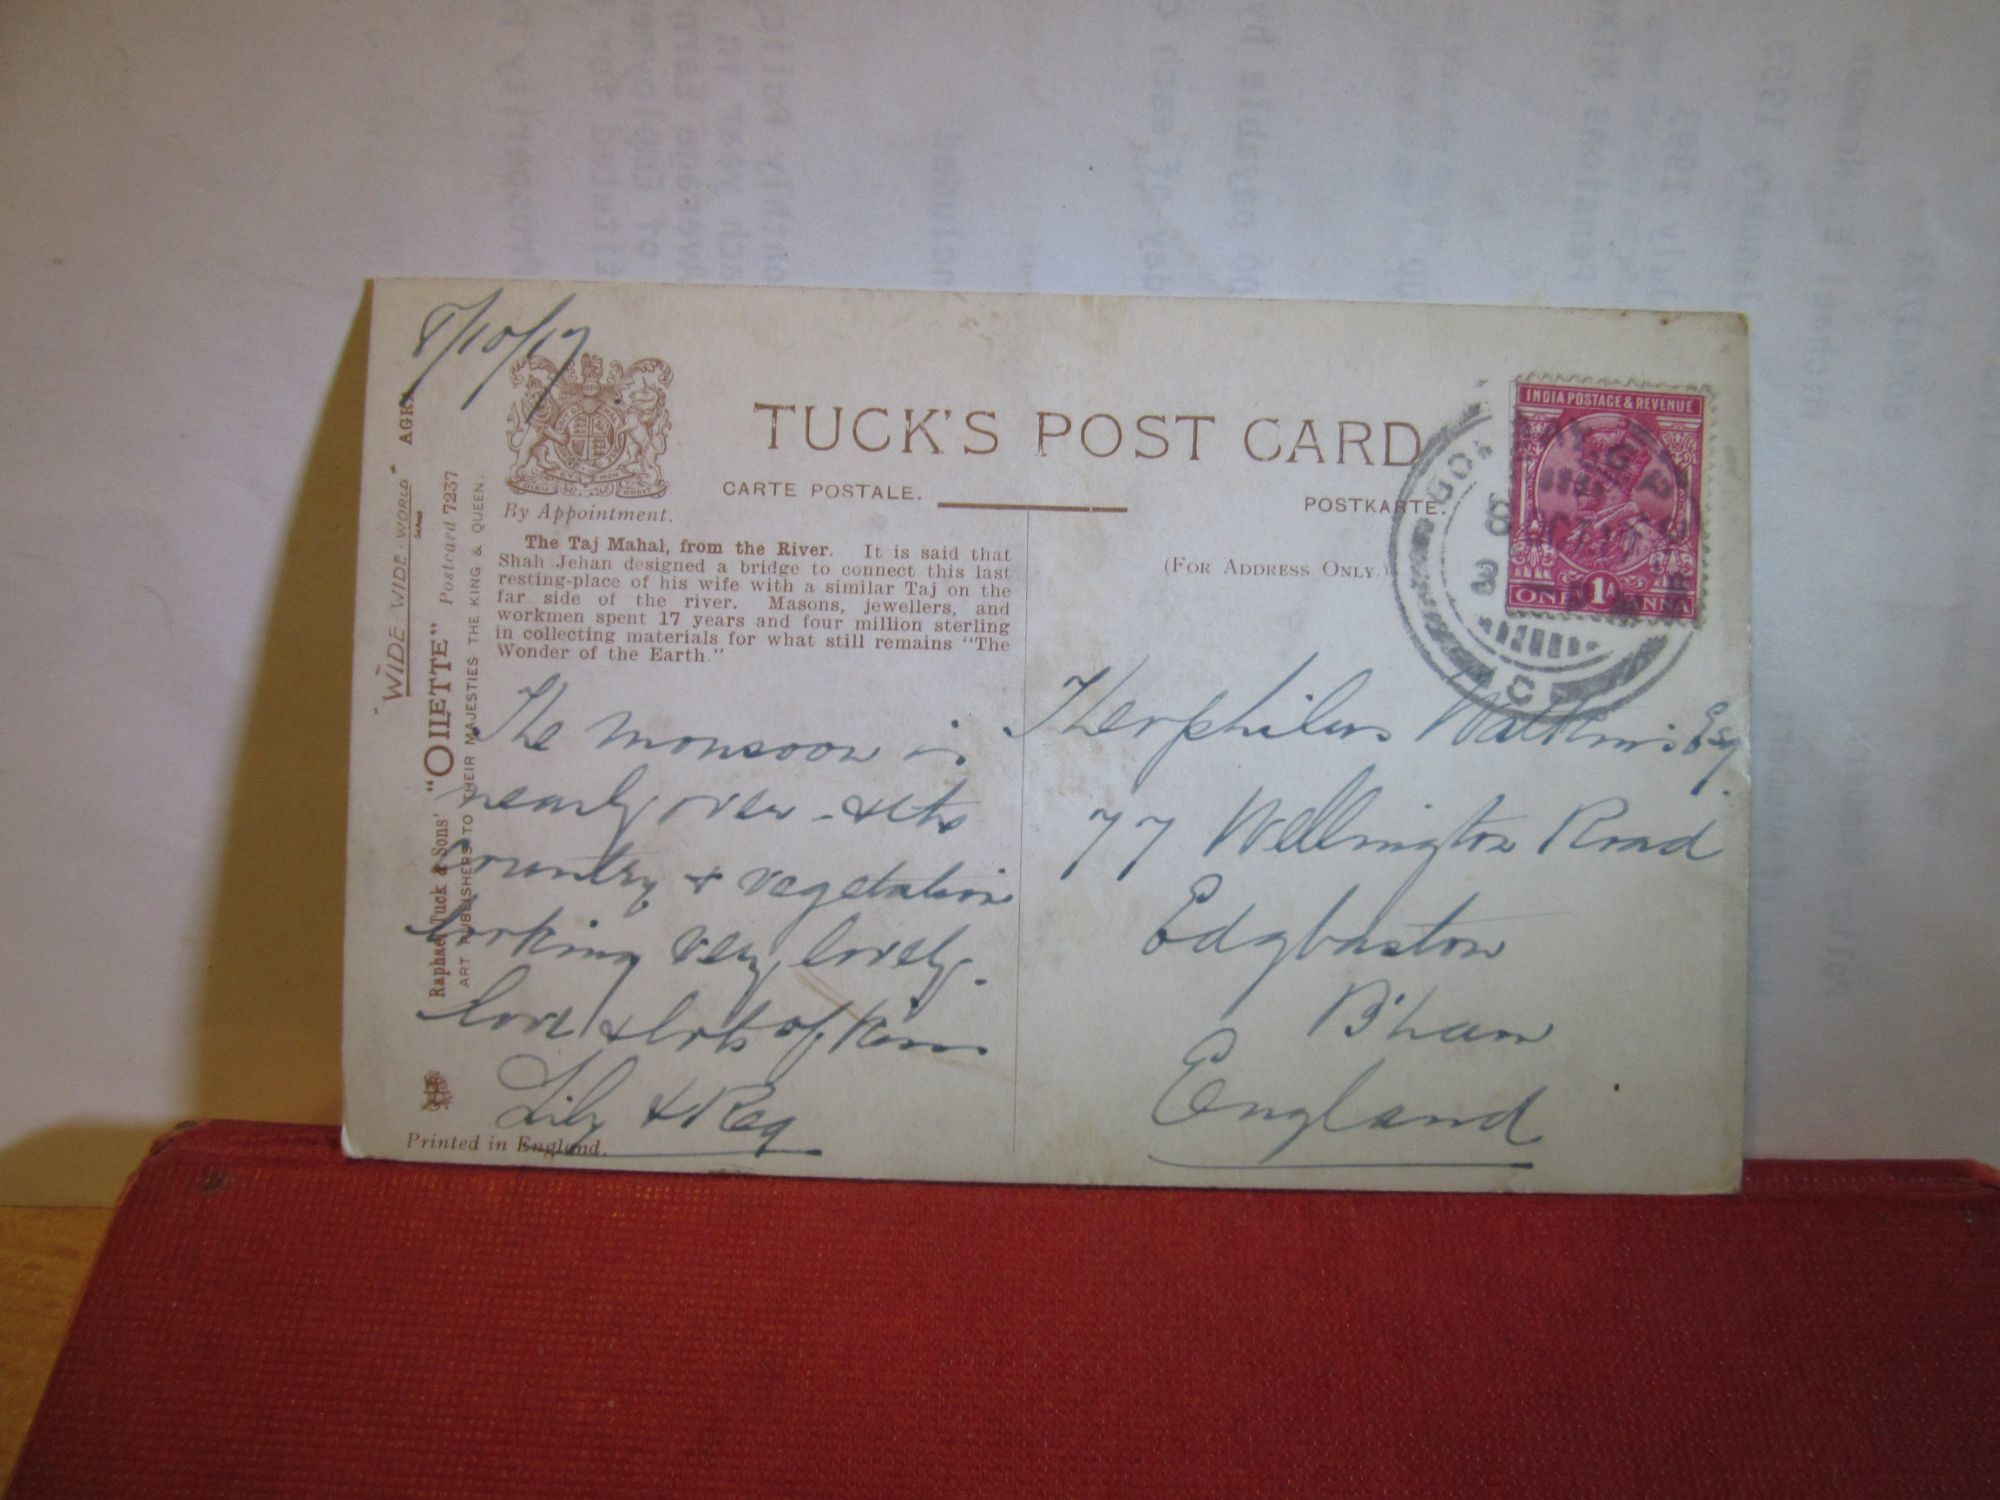 8/10/17
TUCK'S POST CARD
CARTE POSTALE.
POSTKARTE.
By Appointment.
(FOR ADDRESS ONLY.)
The Taj Mahal, from the River. It is said that
Shah Jehan designed a bridge to connect this last
resting-place of his wife with a similar Taj on the
far side of the river. Masons, jewellers, and
workmen spent 17 years and four million sterling
in collecting materials for what still remains "The
Wonder of the Earth."
"WIDE-WIDE-WORLD"
Raphael Tuck & Sons' "OILETTE" Postcard 7237
ART PUBLISHERS TO THEIR MAJESTIES THE KING & QUEEN.
The monsoon is
nearly over - & the
country & vegetation
looking very lovely.
Love & lots of
Lily & Reg
Printed in England.
INDIA POSTAGE & REVENUE
ONE 1A ANNA
Theophilus Watkins Esq.
77 Wellington Road
Edgbaston
B'ham
England